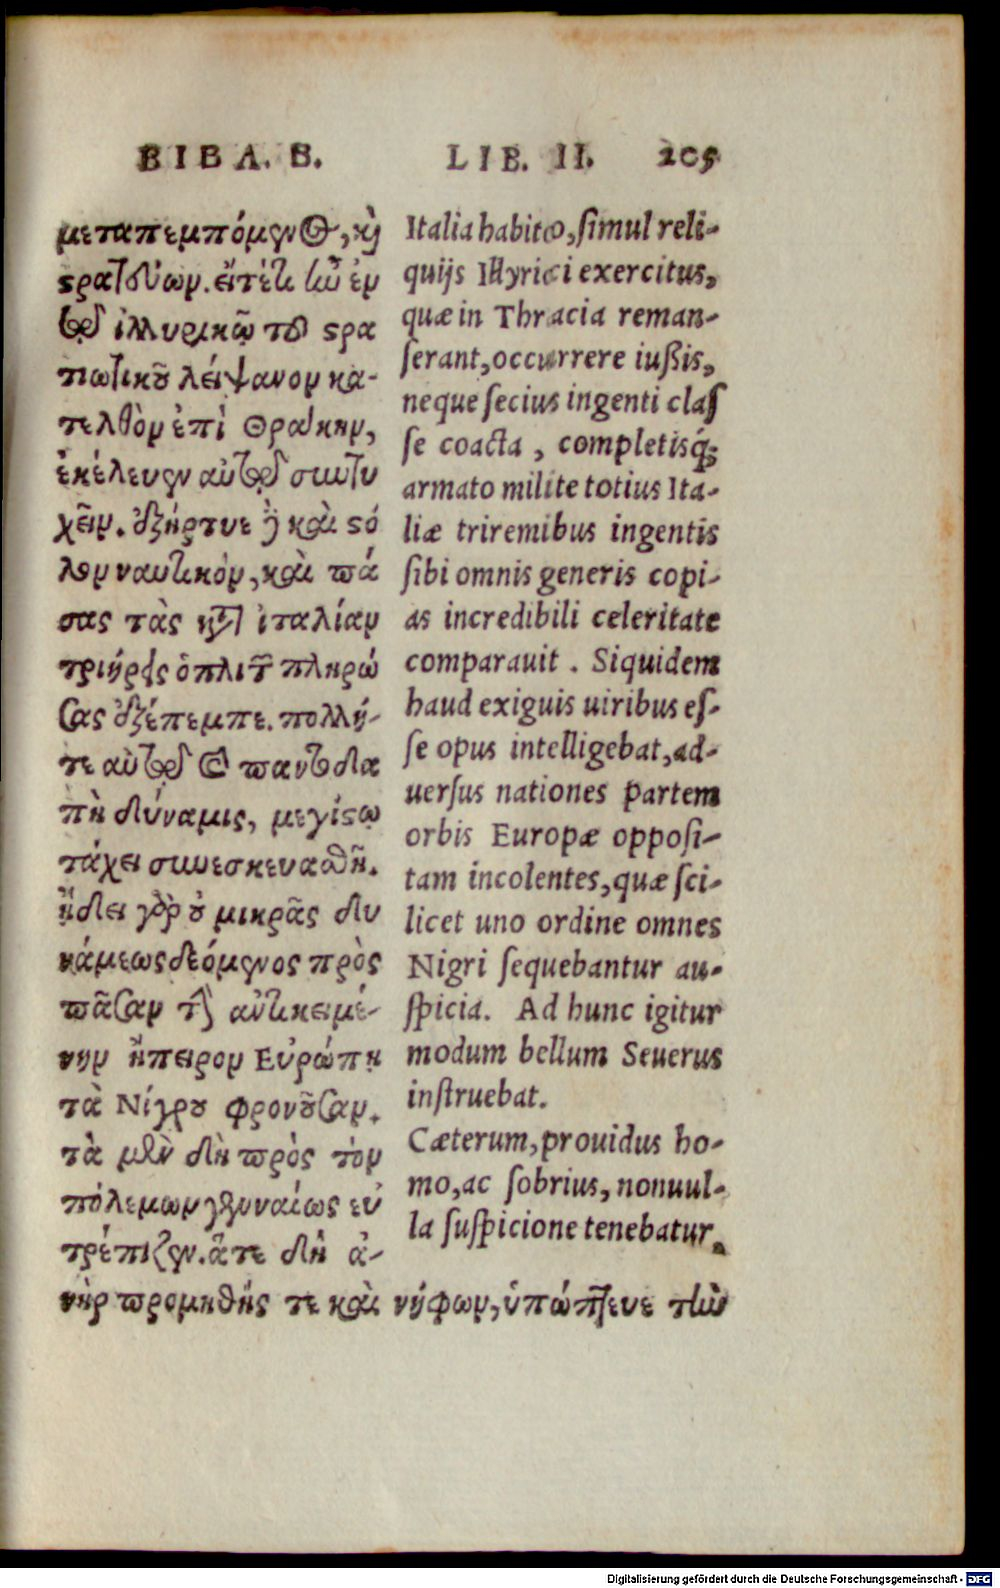 ΒΙΒΛ. Β. LIB. II. 205
μεταπεμπόμενος, καὶ
στρατεύων. εἴ τέ τι ἦν ἐν
τῷ ἰλλυρικῷ τοῦ στρα
τιωτικοῦ λείψανον κα-
τελθὸν ἐπὶ Θρᾴκην,
ἐκέλευεν αὐτῷ συντυ
χεῖν. ἐξήρτυε δὲ καὶ στό
λον ναυτικὸν, καὶ πά
σας τὰς κατὰ ἰταλίαν
τριήρεις ὁπλιτῶν πληρώ
σας ἐξέπεμπε. πολλή-
τε αὐτῷ καὶ παντοδα
πὴ δύναμις, μεγίστῳ
τάχει συνεσκευάσθη.
ᾔδει γὰρ οὐ μικρᾶς δυ
νάμεως δεόμενος πρὸς
πᾶσαν τὴν ἀντικειμέ-
νην ἤπειρον Εὐρώπῃ
τὰ Νίγρου φρονοῦσαν.
τὰ μὲν δὴ πρὸς τὸν
πόλεμον γενναίως εὐ
τρέπιζεν. ἅτε δὴ ἀ-
νὴρ προμηθής τε καὶ νήφων, ὑπώπτευε τὴν
Italia habito, simul reli-
quijs Illyrici exercitus,
quæ in Thracia reman-
serant, occurrere iußis,
neque secius ingenti clas
se coacta, completisq́;
armato milite totius Ita-
liæ triremibus ingentis
sibi omnis generis copi-
as incredibili celeritate
comparauit. Siquidem
haud exiguis uiribus es-
se opus intelligebat, ad-
uersus nationes partem
orbis Europæ opposi-
tam incolentes, quæ sci-
licet uno ordine omnes
Nigri sequebantur au-
spicia. Ad hunc igitur
modum bellum Seuerus
instruebat.
Cæterum, prouidus ho-
mo, ac sobrius, nonuul-
la suspicione tenebatur
Digitalisierung gefördert durch die Deutsche Forschungsgemeinschaft - DFG